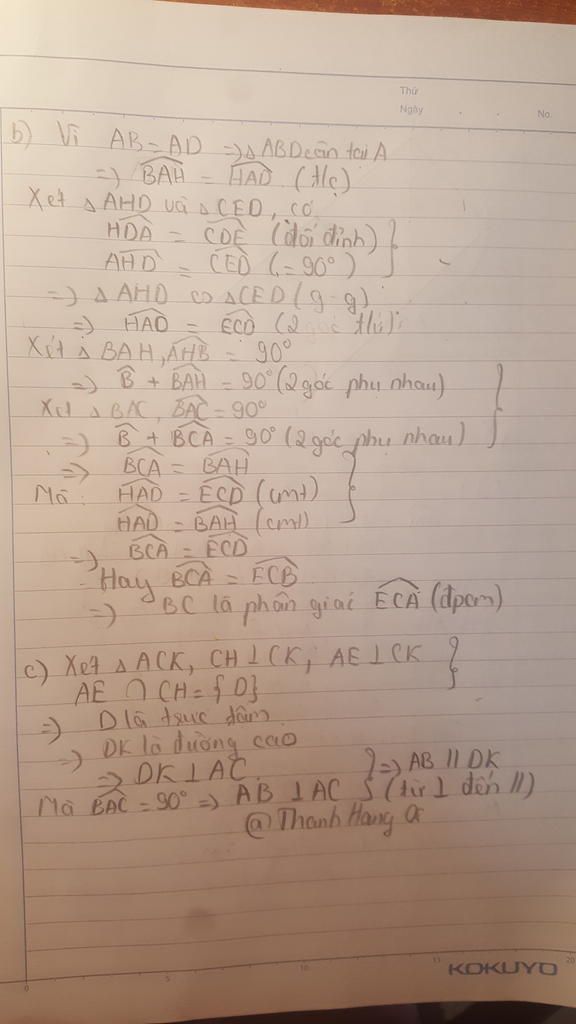 Thứ
Ngày
No.
b) Vì AB = AD => △ABD cân tại A
=> \widehat{BAH} = \widehat{HAD} (t/c)
Xét △AHD và △CED, có
\widehat{HDA} = \widehat{CDE} (đối đỉnh)
\widehat{AHD} = \widehat{CED} (= 90°)
=> △AHD ∽ △CED (g-g)
=> \widehat{HAD} = \widehat{ECD} (2 góc t/ứ)
Xét △BAH, \widehat{AHB} = 90°
=> \widehat{B} + \widehat{BAH} = 90° (2 góc phụ nhau)
Xét △BAC, \widehat{BAC} = 90°
=> \widehat{B} + \widehat{BCA} = 90° (2 góc phụ nhau)
=> \widehat{BCA} = \widehat{BAH}
Mà \widehat{HAD} = \widehat{ECD} (cmt)
\widehat{HAD} = \widehat{BAH} (cmt)
=> \widehat{BCA} = \widehat{ECD}
Hay \widehat{BCA} = \widehat{ECB}
=> BC là phân giác \widehat{ECA} (đpcm)
c) Xét △ACK, CH ⊥ CK, AE ⊥ CK
AE ∩ CH = {D}
=> D là trực tâm
=> DK là đường cao
=> DK ⊥ AC } => AB // DK
Mà \widehat{BAC} = 90° => AB ⊥ AC (từ ⊥ đến //)
@ Thanh Hang
0 5 10 15 20
KOKUYO